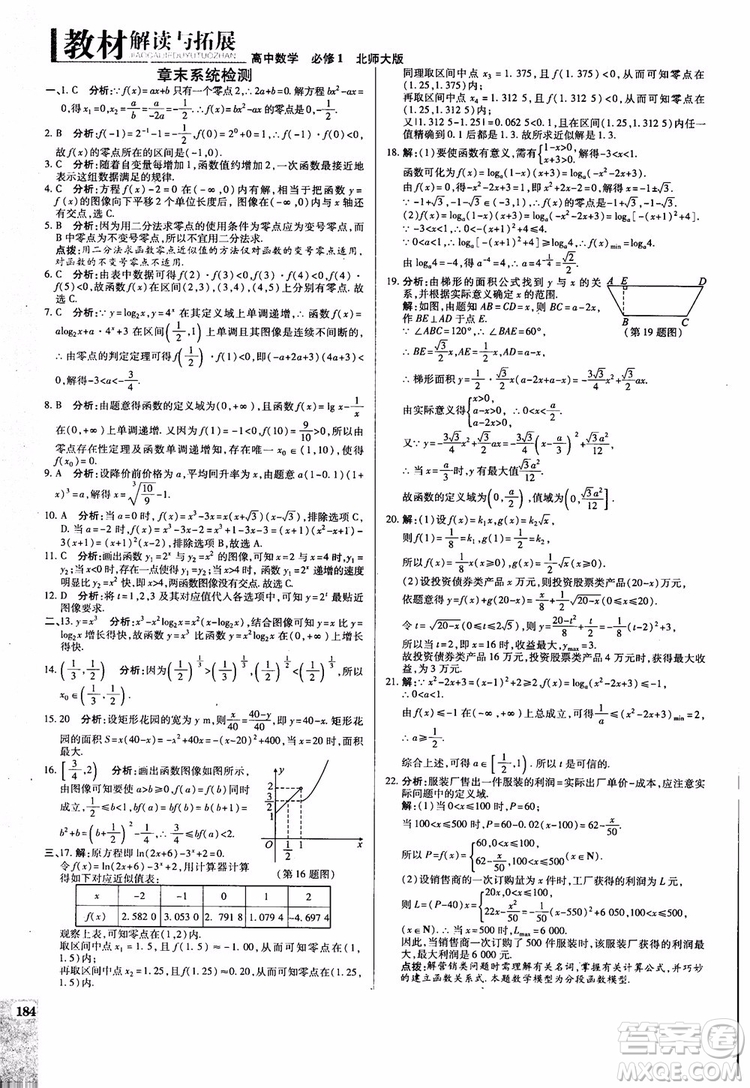 教材 解读与拓展
JIAOCAIJIEDUYUTUOZHAN
高中数学 必修1 北师大版
章末系统检测
一、1. C 分析:∵f(x)=ax+b 只有一个零点 2,∴2a+b=0. 解方程 bx²-ax
=0,得x₁=0,x₂=a/b=a/(-2a)=-1/2.
2. B 分析:f(-1)=2⁻¹-1=-1/2<0,f(0)=2⁰+0=1>0.
故 f(x)的零点所在的区间为(-1,0).
3. C 分析:随着自变量每增加1,函数值约增加3.5,C中函数最接近地
表示这组数据满足的规律.
4. C 分析:方程 f(x)-2=0 在(-∞,0)内有解,
f(x)的图像向下平移2个单位长度后,图像在(-∞,0)内与x轴还
有交点,选 C.
5. B 分析:因为用二分法求零点的使用条件为零点应为变号零点,而
B中零点不为变号零点,所以不宜用二分法.
点拨:用二分法求函数零点近似值的方法仅对函数的变号零点适用,
对函数的不变号零点不适用.
6. C 分析:由表中数据可知 f(2)·f(3)<0,f(3)·f(4)<0,f(4)·
f(5)<0,故函数在区间(2,3),(3,4),(4,5)上分别有零点.
7. C 分析:∵y=log₂x,y=4ˣ 在其定义域上单调递增,∴函数f(x)=
alog₂x+a·4ˣ+3在区间(1/2,1)上单调且其图像是连续不间断的,
∴由零点的判定定理可得 f(1/2)·f(1)<0,即(-a+2a+3)(4a+
3)<0,解得-3<a<-3/4.
8. B 分析:由题意得函数的定义域为(0,+∞),且函数f(x)=lg x-1/x
在(0,+∞)上单调递增.又f(1)=-1<0,f(10)=9/10>0,所以由
零点存在性定理及函数单调递增知,x₀∈(1,10),使得
f(x₀)=0.
9. A 分析:设降价前价格为a,平均回升率为x,由题意 a(1-0.1)(1+
x)³=a,解得x=∛(10/9)-1.
10. A 分析:当a=0时,f(x)=x³-3x=x(x+√3)(x-√3),排除选项C,
D.当a=2时,f(x)=x³+2x²-3x=x(x+3)(x-1),排除选项B,故选A.
11. C 分析:画出函数y₁=2ˣ与y₂=x²的图像,可知x=2与x=4时,y₁=
y₂;当x>4时,y₁=2ˣ的图像在y₂=x²的图像上方,故y₁递增的速度
明显比y₂快,两个函数图像还有一个交点在y轴左侧,故选C.
12. C 分析:将t=1,2,3及其对应值代入各选项中,可知y=2ᵗ最贴近
图像要求.
二、13. y=x³ 分析:x³-x²log₂x=x²(x-log₂x),结合图像可知y=x比y=
log₂x增长得快,故函数y=x³增长得快.
14. (1/3,1/2) 分析:因为(1/2)^(1/3)>(1/3)^(1/3),(1/2)^(1/2)<(1/2)^(1/3),所以
x₀∈(1/3,1/2).
15. 20 分析:设矩形花园的宽为y m,则x/40=(40-y)/40,即y=40-x.矩形花
园的面积S=x(40-x)=-x²+40x=-(x-20)²+400,当x=20时,面积
最大.
16. [3/4,2) 分析:画出函数图像如图所示,
由图像可知要使a>b≥0,f(a)=f(b)同时
成立,∴1/2≤b<1,bf(a)=b·f(b)=b(b+1)=
b²+b=(b+1/2)²-1/4,∴3/4≤b·f(a)<2.
(第16题图)
三、17. 解:原方程即 ln(2x+6)-3ˣ+2=0.
令f(x)=ln(2x+6)-3ˣ+2,用计算器计算
得出如下近似值表:
x -2 -1 0 1 2
f(x) 2.582 0 3.053 0 2.791 8 1.079 4 -4.697 4
观察上表,可知零点在(1,2)内.
取区间中点x₁=1.5,且f(1.5)≈-1.00,可知零点在(1,1.5)内;
再取区间中点x₂=1.25,且f(1.25)≈0.20,可知零点在(1.25,
1.5)内.
同理取区间中点x₃=1.375,且f(1.375)<0,可知零点在
(1.25,1.375)内.
再取区间中点x₄=1.312 5,且f(1.312 5)<0,可知零点在
(1.25,1.312 5)内.
又|1.312 5-1.25|=0.062 5<0.1,故区间[1.25,1.312 5]内任一
值精确到0.1为1.3.故所求近似解是1.3.
18. 解:(1)要使函数有意义,需有{1-x>0, x+3>0,解得-3<x<1.
函数可化为f(x)=logₐ(1-x)(x+3)=logₐ(-x²-2x+3).
由f(x)=0,得-x²-2x+3=1,即x²+2x-2=0,解得x=-1±√3.
∵-1±√3∈(-3,1),∴f(x)的零点为-1±√3.
(2)f(x)=logₐ(-x²-2x+3)=logₐ[-(x+1)²+4].
∵-3<x<1,∴0<-(x+1)²+4≤4.
∵0<a<1,∴logₐ[-(x+1)²+4]≥logₐ4,即f(x)min=logₐ4.
由logₐ4=-4,得a⁻⁴=4,∴a=4^(-1/4)=√2/2.
19. 分析:由梯形的面积公式找到y与x的关
系,并由实际意义确定x的范围.
解:如图,由题意知AB=CD=x,则BC=a-2x,
作BE⊥AD于点E.
∵∠ABC=120°,∴∠BAE=60°.
(第19题图)
∴BE=√3/2 x,AE=x/2,AD=a-x.
∴梯形面积y=1/2·√3/2 x(a-2x+a-x)=-3√3/4 x²+√3/2 ax.
由实际意义得{x>0, a-x>0, a-2x>0,∴0<x<a/2.
又∵y=-3√3/4 x²+√3/2 ax=-3√3/4(x-a/3)²+√3/12 a²,
∴当x=a/3时,y有最大值√3/12 a².
故函数的定义域为(0,a/2),值域为(0,√3/12 a²].
20. 解:(1)设f(x)=k₁x,g(x)=k₂√x,
则f(1)=1/8=k₁,g(1)=1/2=k₂,
所以f(x)=1/8 x(x≥0),g(x)=1/2√x(x≥0).
(2)设投资债券类产品x万元,则投资股票类产品(20-x)万元.
依题意得y=f(x)+g(20-x)=x/8+1/2√(20-x)(0≤x≤20).
令t=√(20-x)(0≤t≤2√5),则y=(20-t²)/8+1/2 t=-1/8(t-2)²+3,
所以当t=2,即x=16时,收益最大,ymax=3.
故投资债券类产品16万元,投资股票类产品4万元时获得最大收
益,为3万元.
22. 分析:服装厂售出一件服装的利润=实际出厂单价-成本,应注意实
际问题中的定义域.
解:(1)当0<x≤100时,P=60;
当100<x≤500时,P=60-0.02(x-100)=62-x/50.
所以P=f(x)={60,0<x≤100, 62-x/50,100<x≤500 (x∈N).
(2)设销售商的一次订购量为x件时,工厂获得的利润为L元,
则L=(P-40)x={20x,0<x≤100, 22x-x²/50,100<x≤500 (x∈N).
因此,当销售商一次订购了500件服装时,该服装厂获得的利润最
大,最大利润是6 000元.
点拨:解营销类问题时需理解有关名词,掌握有关计算公式,并巧妙
的建立函数关系式.本题数学模型为分段函数模型.
184
答案圈
MXQE.COM